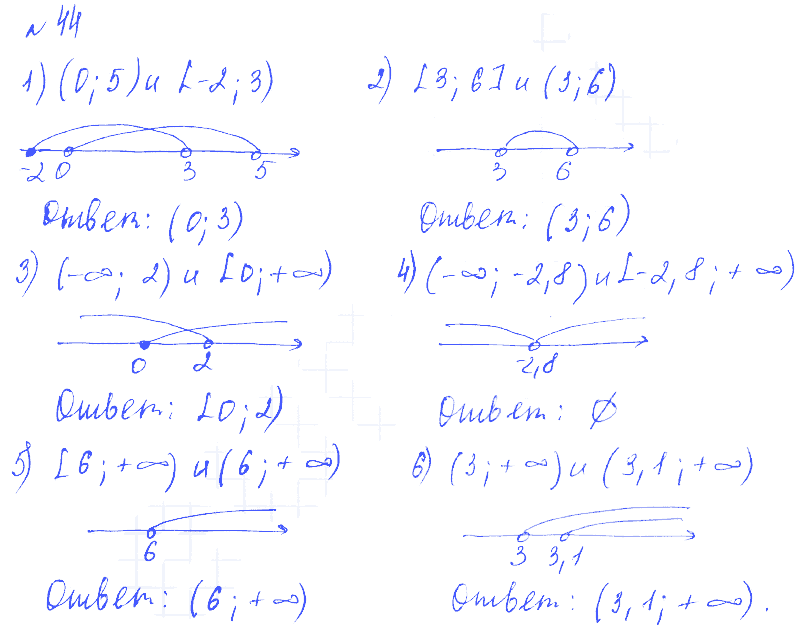 № 44
1) (0; 5) и [-2; 3)
2) [3; 6] и (3; 6)
-2 0 3 5
3 6
Ответ: (0; 3)
Ответ: (3; 6)
3) (-∞; 2) и [0; +∞)
4) (-∞; -2,8) и [-2,8; +∞)
0 2
-2,8
Ответ: [0; 2)
Ответ: ∅
5) [6; +∞) и (6; +∞)
6) (3; +∞) и (3,1; +∞)
6
3 3,1
Ответ: (6; +∞)
Ответ: (3,1; +∞).